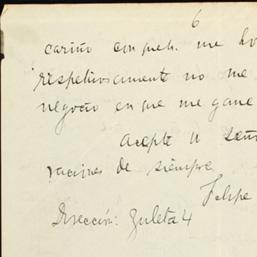 6
cariño con que h. me ho
respetuosamente no me
negocio en que me gane
Acepte U seño
raciones de siempre
Felipe
Dirección: Zuleta 4